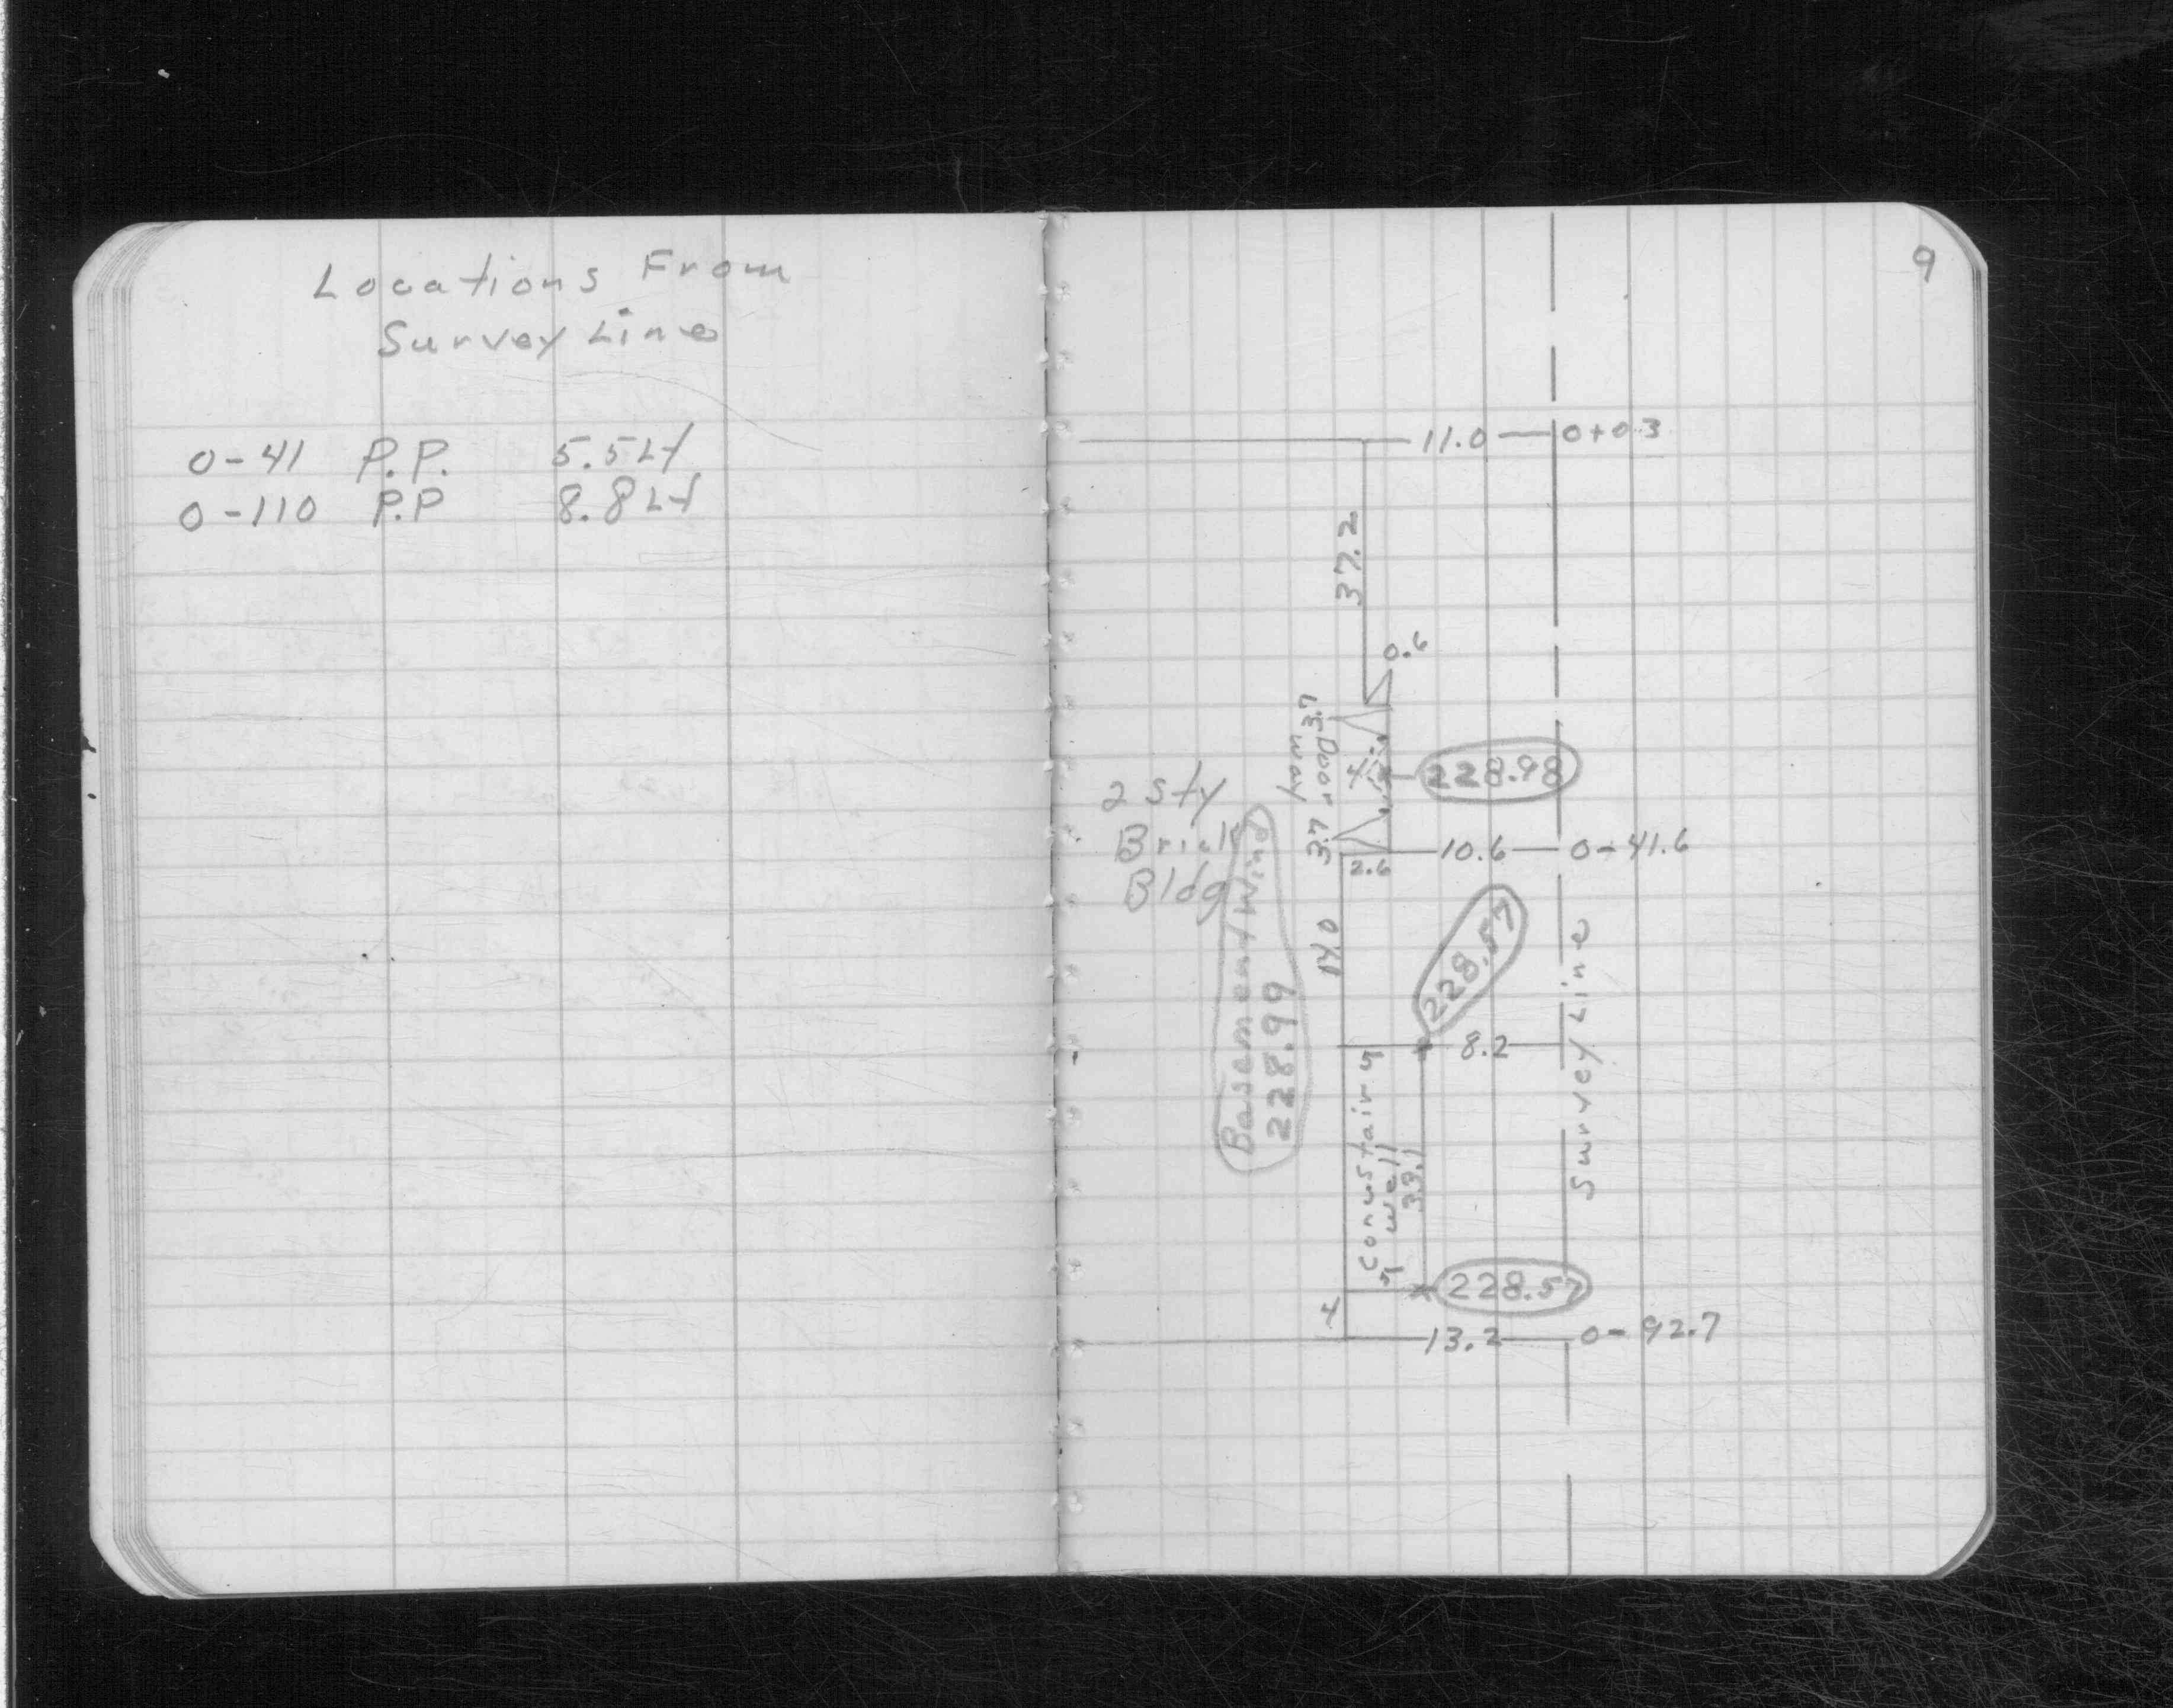 Locations From
Survey Line
0-41 P.P. 5.5 Lt
0-110 P.P 8.8 Lt
9
11.0 0+0.3
37.2
0.6
3.7
Door
way
4
228.98
3.7
2 sty
Brick
Bldg
2.6
10.6 0-41.6
Basement Wind
228.99
14.0
228.57
8.2
Survey Line
Conc stair
well
33.1
5
5
228.57
4
13.2 0-92.7